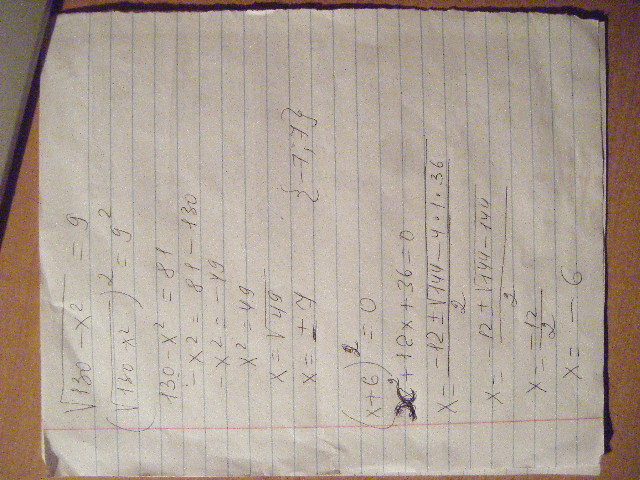 √130 - x² = 9
(√130 - x²)² = 9²
130 - x² = 81
- x² = 81 - 130
- x² = -49
x² = 49
x = √49
x = ± 7 {-7, 7}
(x+6)² = 0
x² + 12x + 36 = 0
x = -12 ± √144 - 4•1•36 / 2
x = -12 ± √144 - 144 / 2
x = -12 / 2
x = - 6